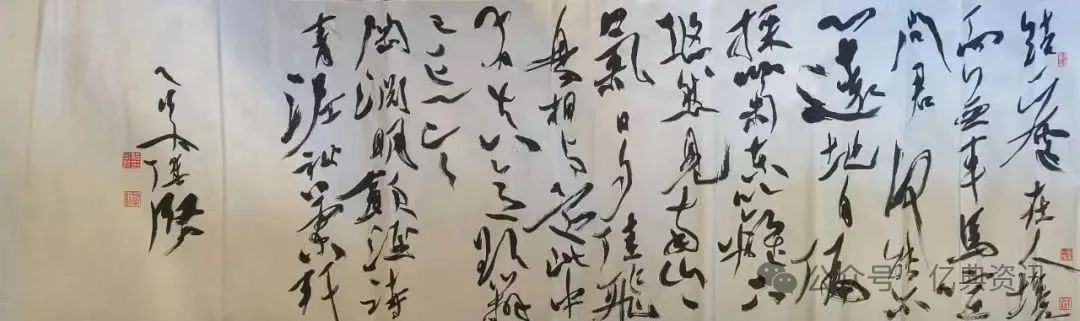 結廬在人境
而無車馬喧
問君何能尔
心遠地自偏
採菊東籬下
悠然見南山山
氣日夕佳飛
鳥相与還此中
有真意欲辨
已忘言
陶淵明飲酒詩
公众号 · 亿典资讯